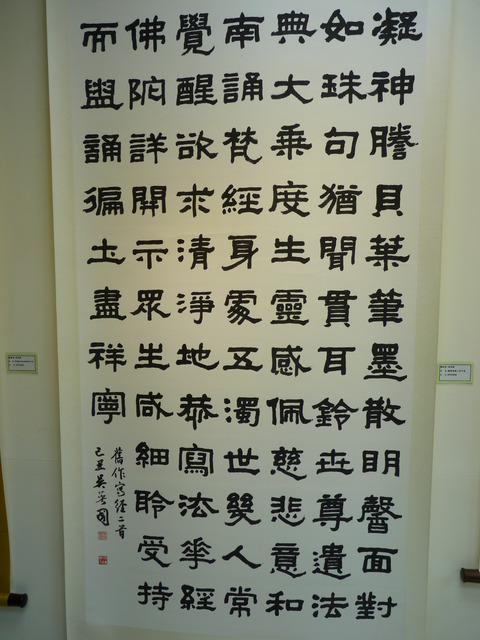 凝神謄貝葉筆墨散明馨面對
如珠句猶聞貫耳鈴世尊遺法
典大乘度生靈感佩慈悲意和
南誦梵經身處五濁世幾人常
覺醒欲求清淨地恭寫法華經
佛陀詳開示眾生咸細聆受持
而與誦徧土盡祥寧
舊作寫經二首
己丑吳國